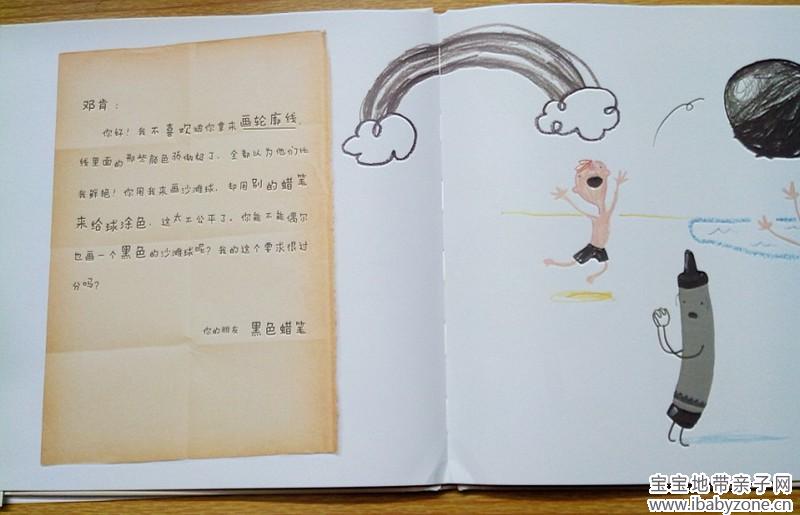 邓肯：
你好！我不喜欢被你拿来画轮廓线，
线里面的那些颜色骄傲极了，全都认为他们比
我鲜艳！你用我来画沙滩球，却用别的蜡笔
来给球涂色，这太不公平了。你能不能偶尔
也画一个黑色的沙滩球呢？我的这个要求很过
分吗？
你的朋友 黑色蜡笔
宝宝地带亲子网
www.ibabyzone.cn